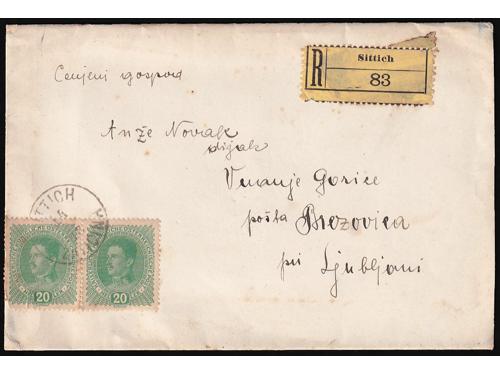 Sittich
R
83
Cenjeni gospod
Anže Novak
dijak
Vnanje Gorice
pošta Brezovica
pri Ljubljani
TTICH
20
20